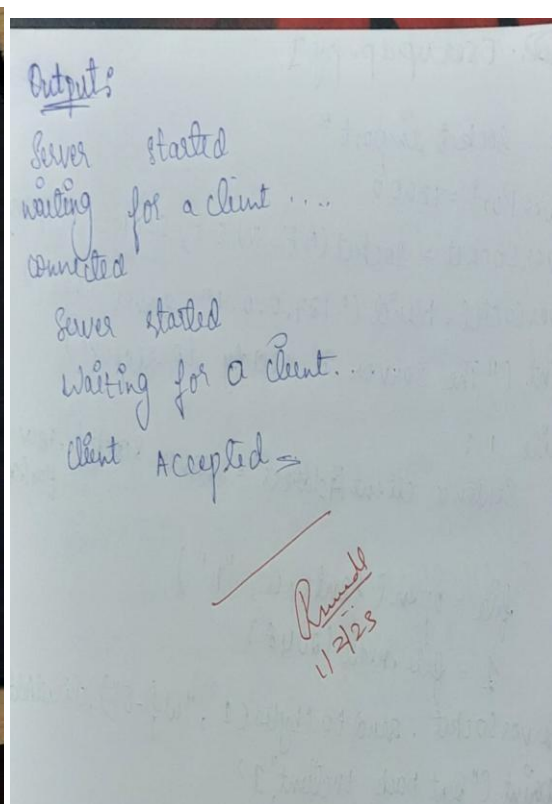 Output:
Server started
waiting for a client ....
connected
Server started
Waiting for a client.
Client Accepted
1/2/23